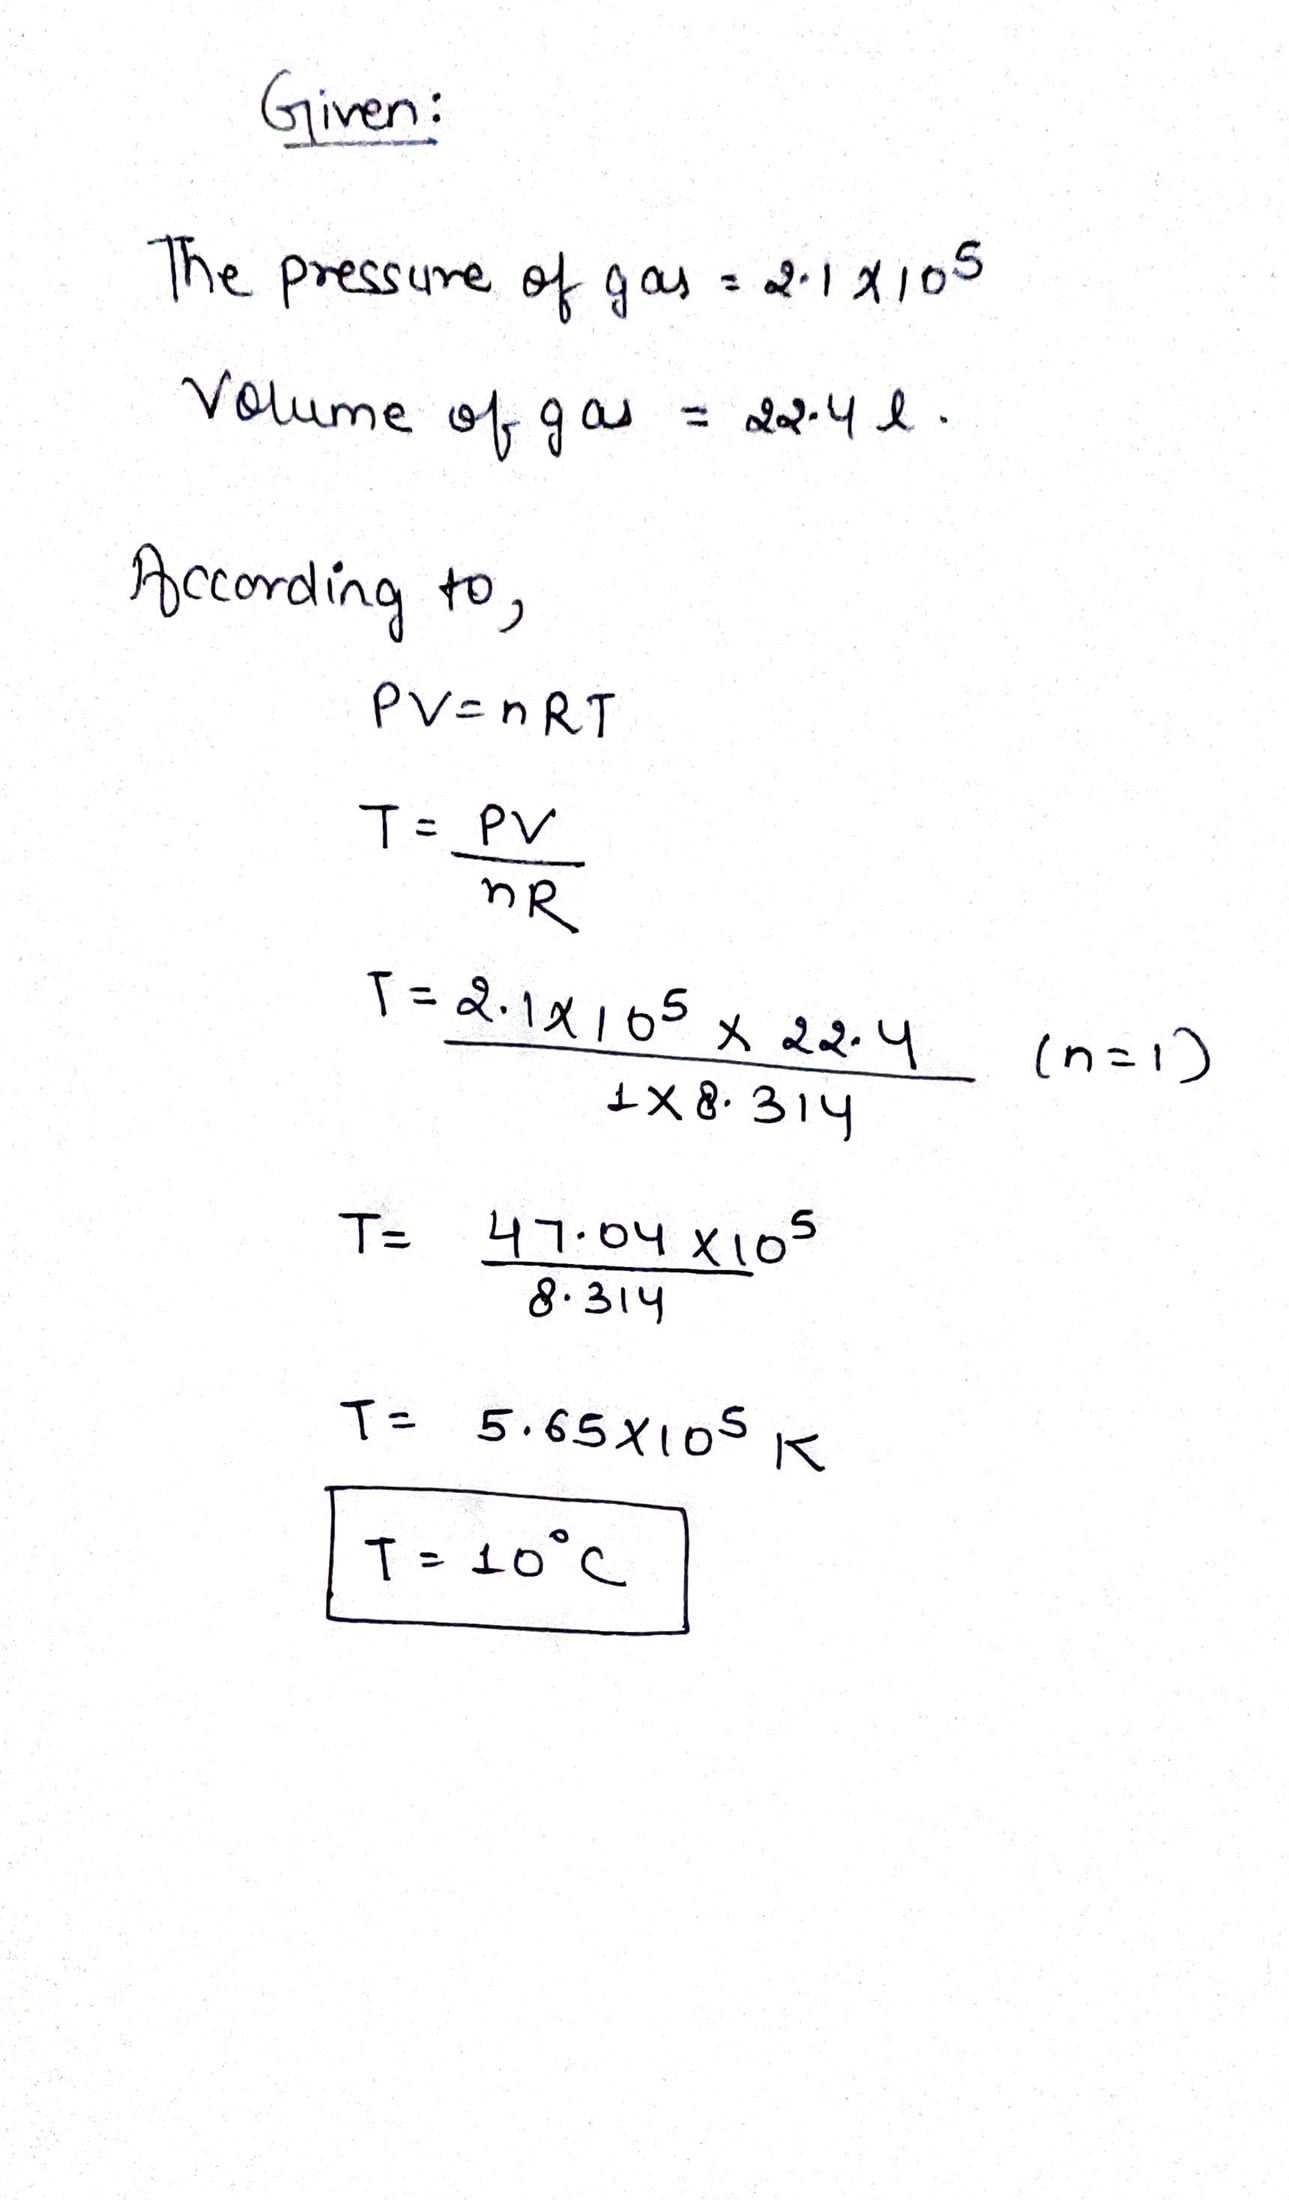 Given:
The pressure of gas = 2.1 x 10⁵
Volume of gas = 22.4 l.
According to,
PV=nRT
T = PV
nR
T = 2.1x10⁵ x 22.4 (n=1)
1 x 8.314
T= 47.04 x10⁵
8.314
T= 5.65x10⁵ K
T = 10°C